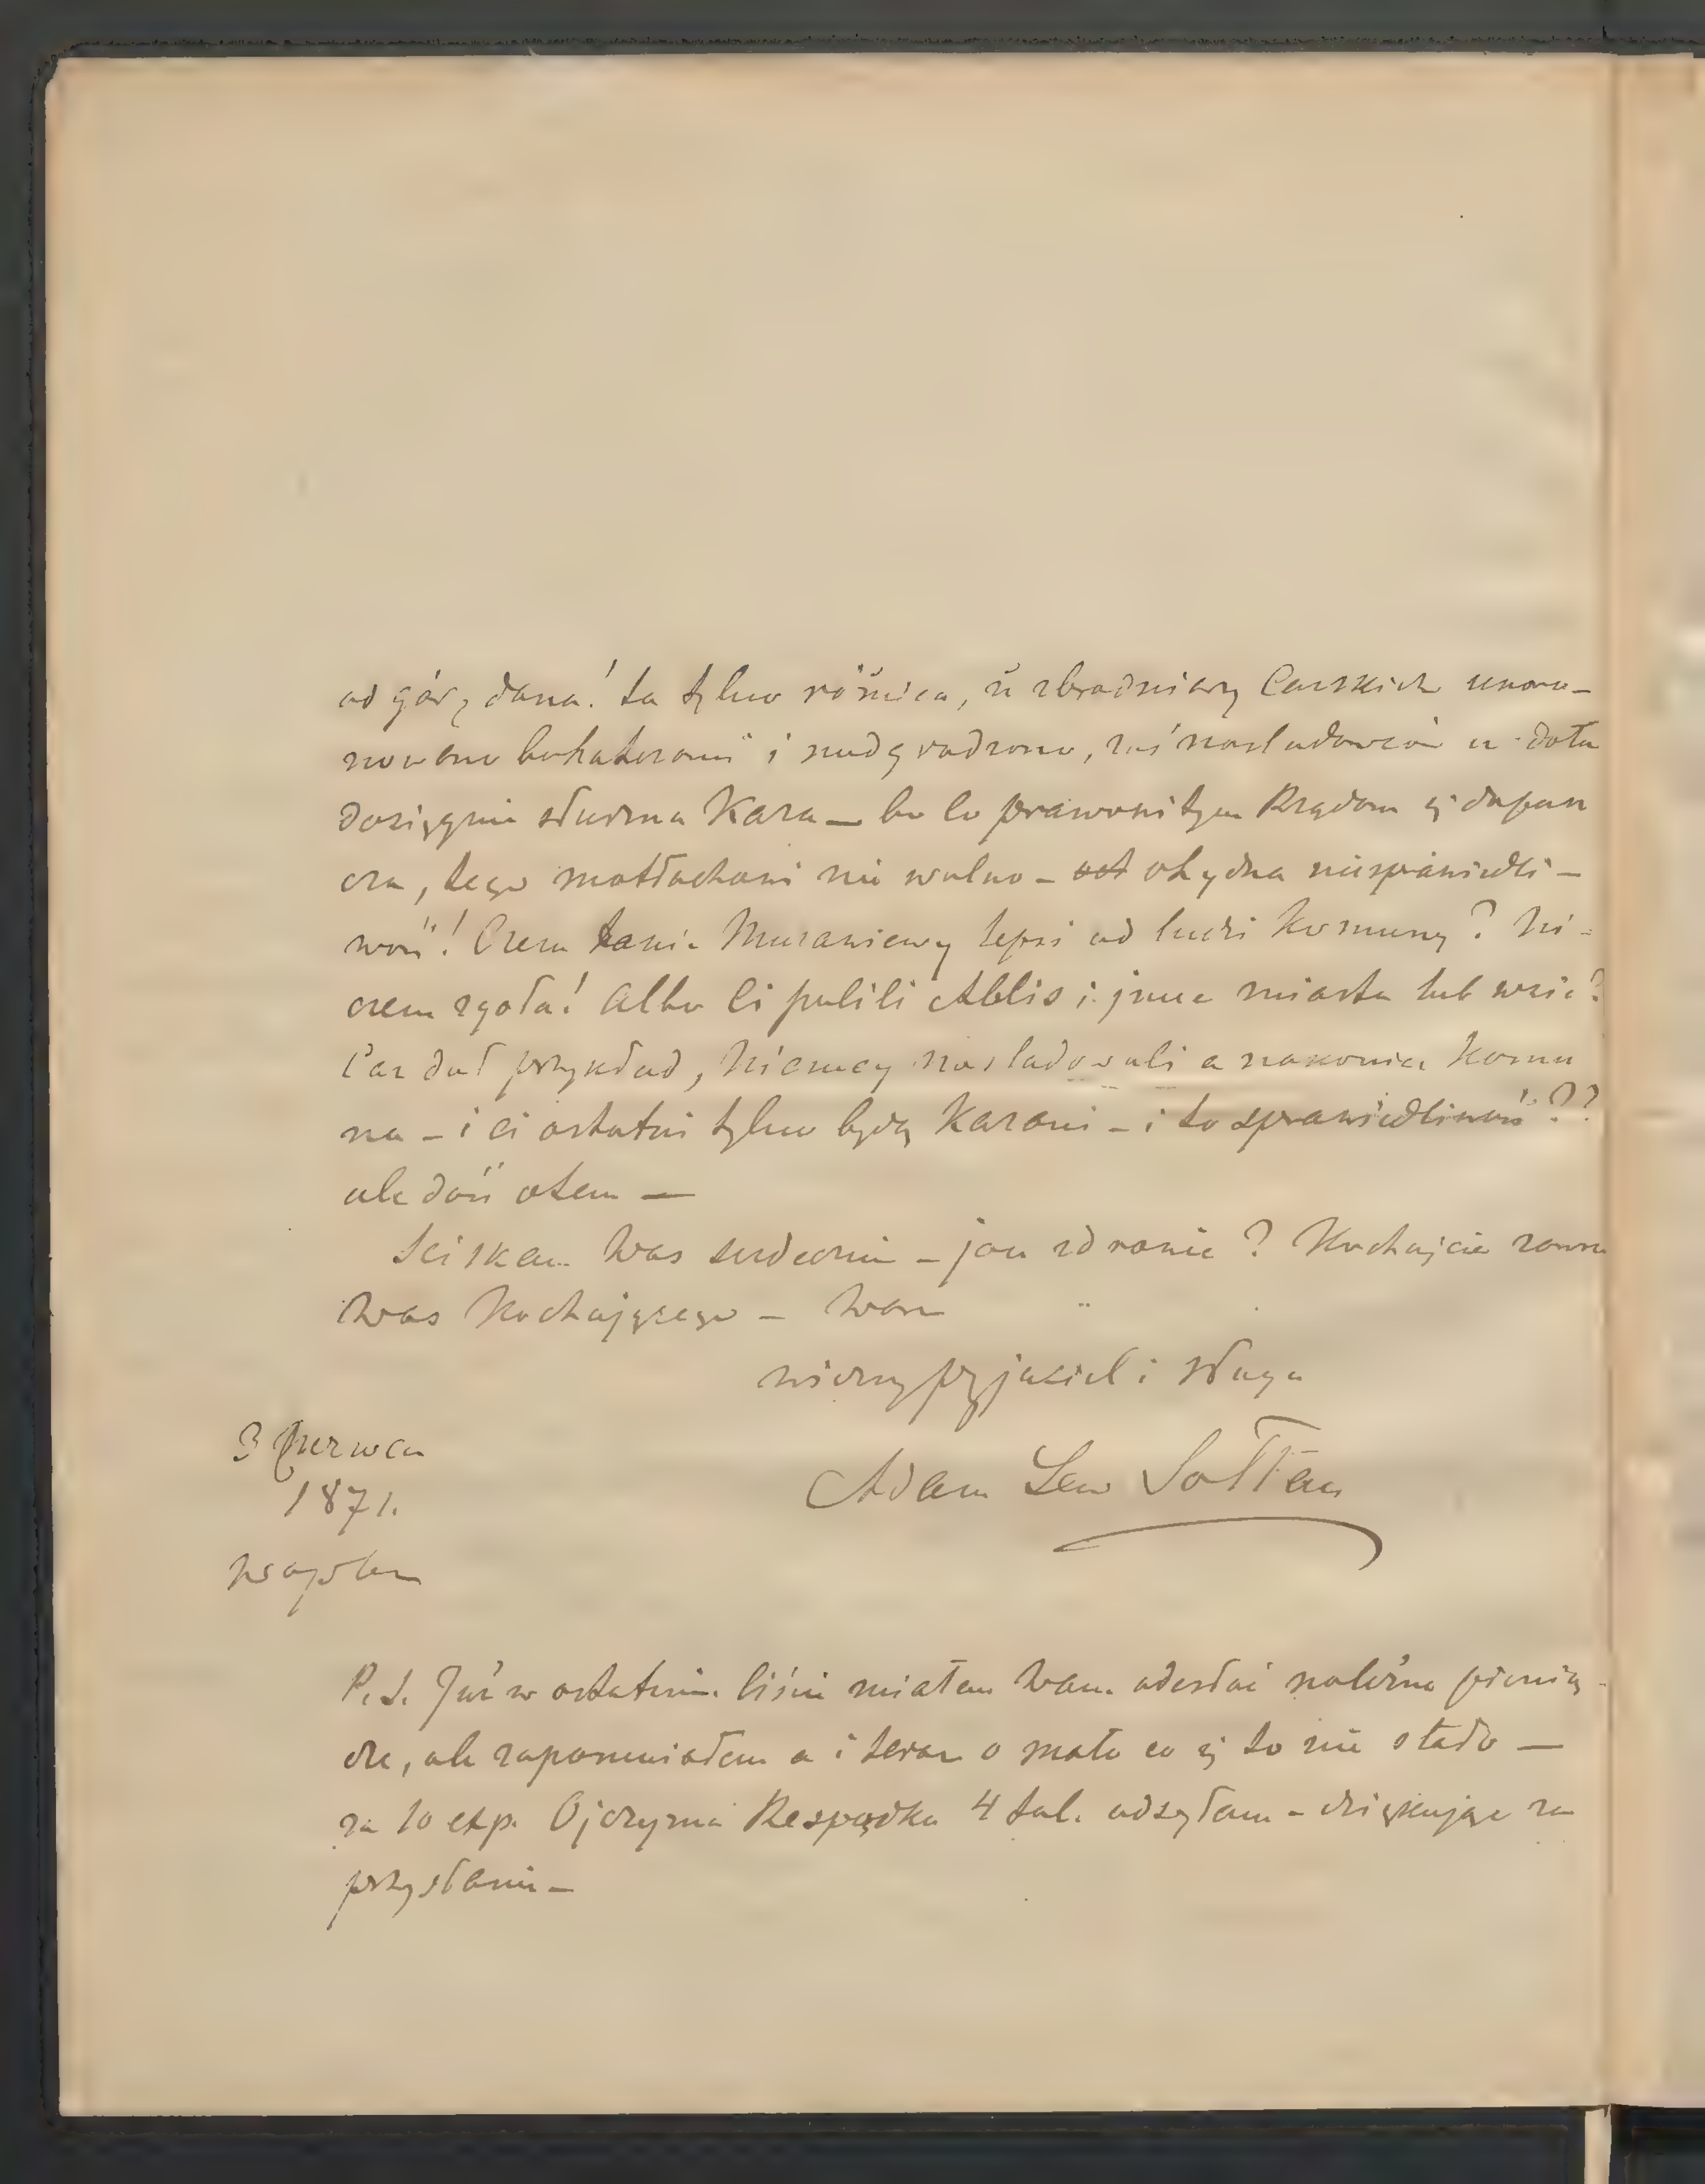 od góry dana! ta tylko różnica, iż zbrodniarzy Carskich uznano
nowano bohaterami i nadgradzono, zaś nasladowców u dołu
dosięgnie słuszna Kara — bo co prawowitym Rządom się dopusz
cza, tego motłochowi nie wolno — ohydna niesprawiedli-
wość! Czem tacnie Murawiewy lepsi od ludzi Komuny? Ni-
czem zgoła! Albo ci palili Ablis i jnne miasta lub wsie?
Car dał przykład, Niemcy nasladowali a nakoniec Komu
na — i ci ostatni tylko będą Karani — i to sprawiedliwość??
ale dość otem —
Sciskam Was serdecznie — jak zdrowie? Kochajcie zawsze
Was Kochającego — Wam
wierny przyjaciel i sługa
Adam Lew Sołtan
3 Czerwca
1871.
P.S. Już w ostatnim liście miałem Wam odesłać należne pienią-
dze, ale zapomniałem a i teraz o mało co się to nie stało —
za 10 exp. Ojczyzma Respądka 4 tal. odsyłam — dziękując za
przysłanie —